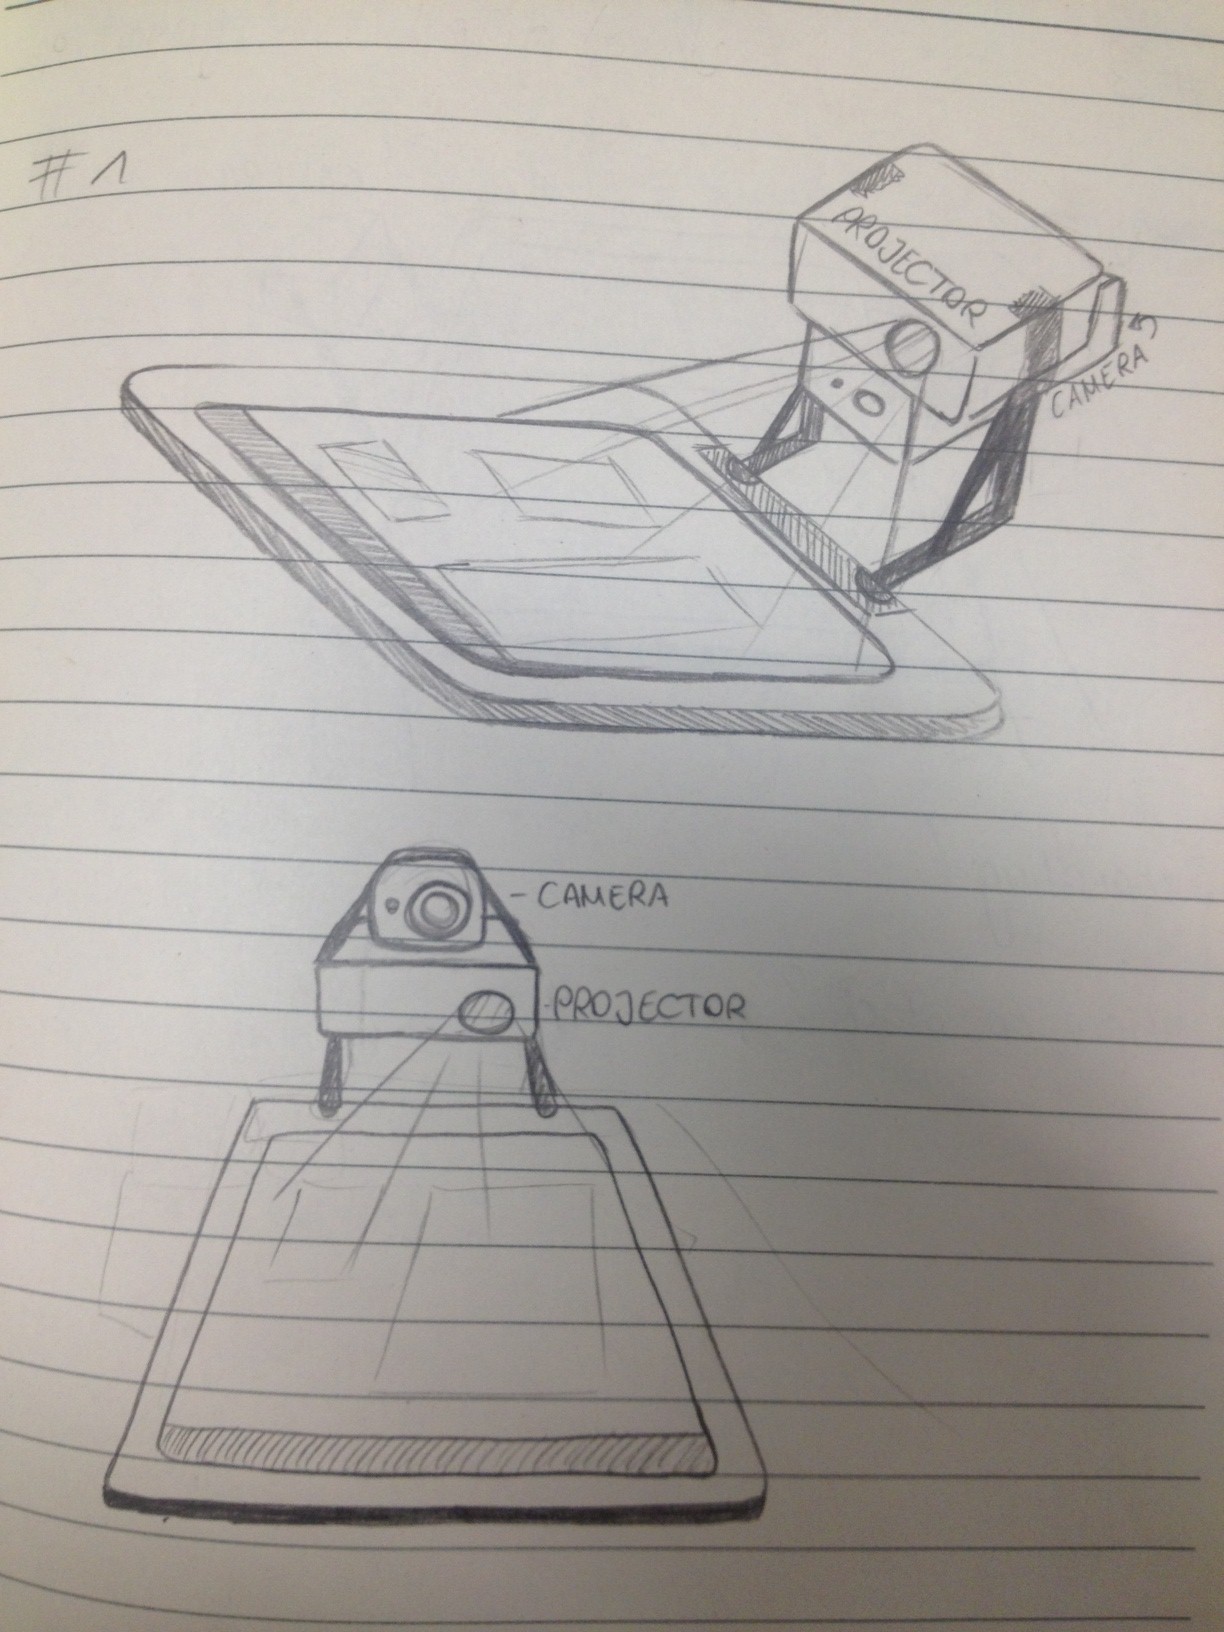 #1
PROJECTOR
CAMERA
- CAMERA
-PROJECTOR